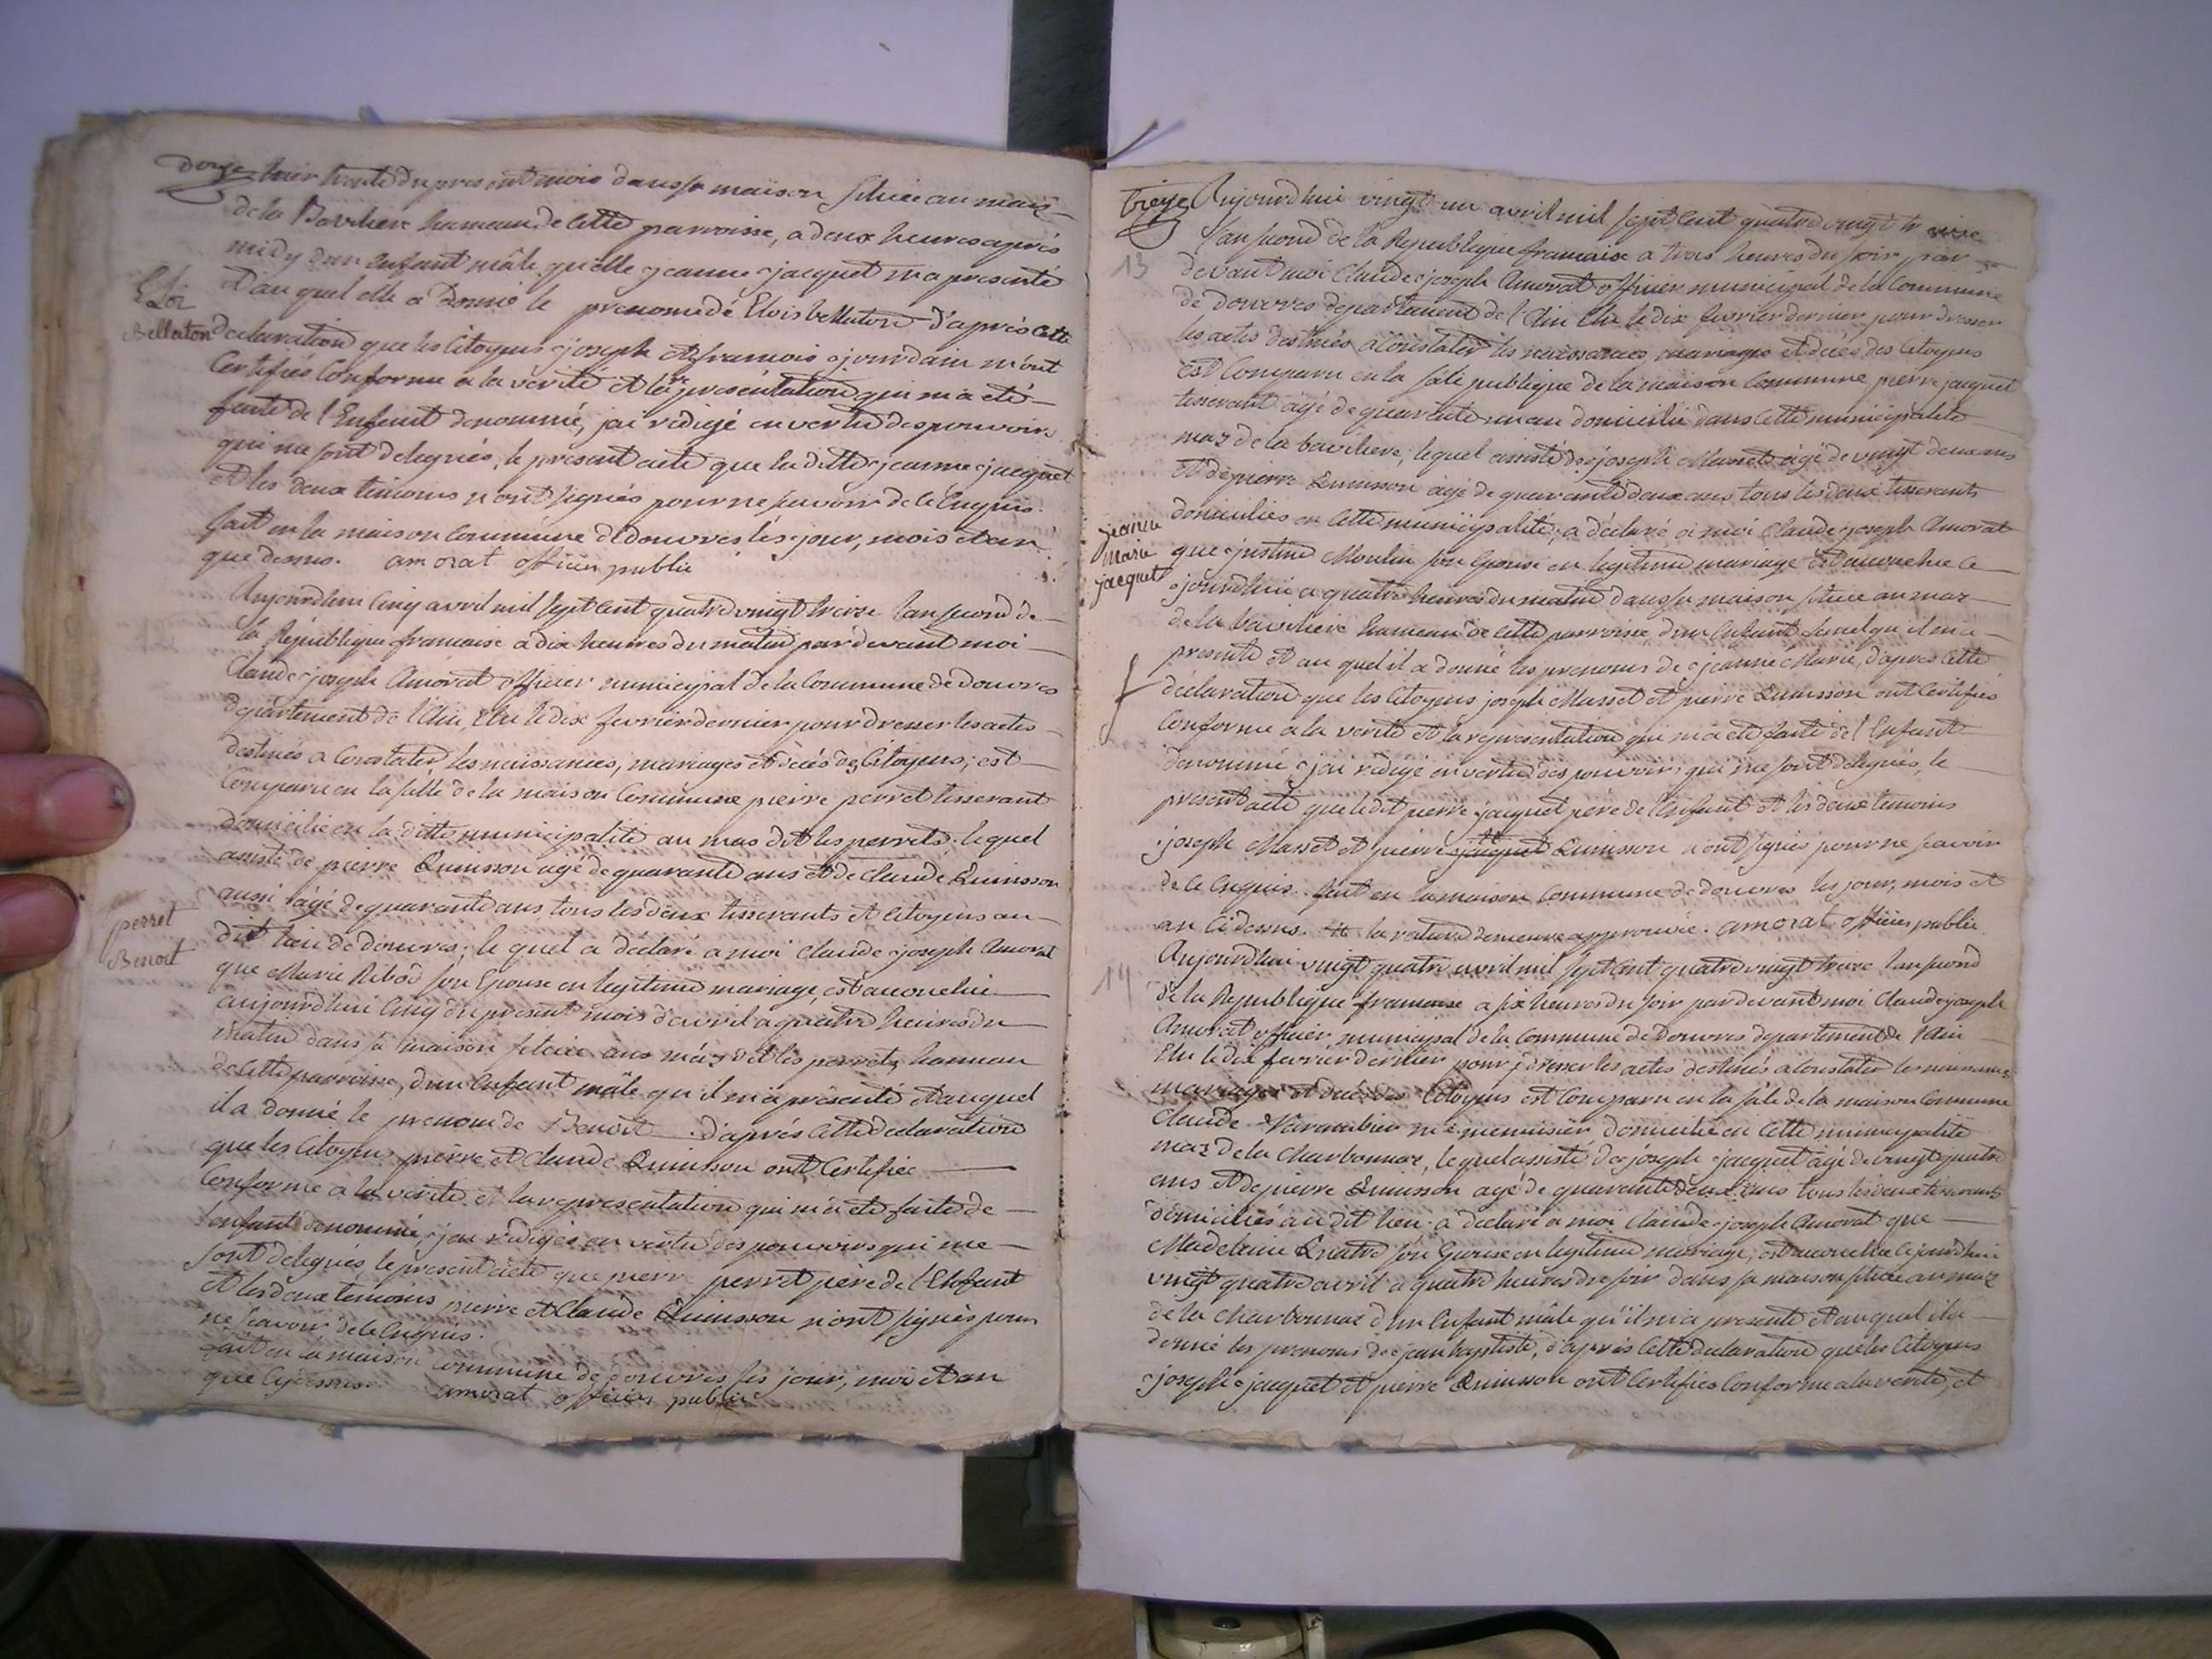 douze hier trente du present mois dans sa maison sitúee au mas
de la Bavilière hameau de cette parroisse, a deux heures après
midy d'un enfant mâle qu'elle jeanne jacquet m'a presenté
Eloi
Bellaton
et au quel elle a donné le prenom de Elois bellaton d'après cette
declaration que les Citoyens joseph et francois jourdain m'ont
Certifiés Conforme a la verité et la représentation qui m'a eté
faite de l'Enfant denommé, jai rédigé en vertu des pouvoirs
qui me sont delegués, le present acte que la ditte jeanne jacquet
et les deux temoins n'ont signés pour ne savoir de ce Enquis.
fait en la maison Commune de douvres les jour, mois et an
que dessus. amorat officier public
Aujourdhui Cinq avril mil sept Cent quatre vingt treise lan second de
la République francaise a dix heures du matin par devant moi
Claude joseph Amorat officier municipal de la Commune de Douvres
département de l'Ain, Elu le dix fevrier dernier pour dresser les actes
destinés a Constater les naissances, mariages et décés des Citoyens, est
Comparu en la salle de la maison Commune pierre perret tisserant
domicilié en la ditte municipalité au mas dit les perrets. lequel
assisté de pierre Quinsson agé de quarante ans et de claude Quinsson
aussi agé de quarante ans, tous les deux tisserants et Citoyens au
perret
Benoit
dit lieu de douvres; le quel a déclaré a moi Claude joseph Amorat
que Marie Ribod son Epouse en legitime mariage, est accouchée
aujourd'hui Cinq du present mois d'avril a quatre heures du
matin dans sa maison sitúee au más dit les perrets, hameau
de cette parroisse, d'un Enfant mâle qu'il m'a présenté et auquel
il a donné le prenom de Benoit d'aprés Cette declaration
que les Citoyens pierre et claude Quinsson ont Certifiée
Conforme a la verité et la representation qui m'a eté faite de
lenfant denommé, j'ai rédigé en vertu des pouvoirs qui me
sont delegués le present acte que pierre perret père de l'Enfant
et les deux temoins pierre et Claude Quinsson n'ont signés pour
ne scavoir de ce Enquis.
fait en la maison commune de douvres les jour, mois et an
que Cy dessus. amorat officier public
treize Aujourdhui vingt un avril mil sept Cent quatre vingt treise
13
lan second de la République francaise a trois heures du soir par
devant moi Claude joseph Amorat officier municipal de la Commune
de douvres département de l'Ain Elu le dix fevrier dernier pour dresser
les actes destinés a Constater les naissances mariages et décés des Citoyens
est Comparu en la sale publique de la maison Commune pierre jacquet
tisserant agé de quarente un an domicilié dans Cette municipalité
mas de la baviliere, lequel assisté de joseph Masset agé de vingt deux ans
et de pierre Quinsson agé de quarante deux ans tous les deux tisserants
jeanne
marie
jacquet
domiciliés en Cette municipalité a déclaré a moi Claude joseph Amorat
que justine Moulin son Epouse en legitime mariage est accouchée ce
jourdhui a quatre heures du matin dans sa maison située au mas
de la baviliere hameau de cette parroisse d'un Enfant femel qu'il m'a
presenté et au quel il a donné les prenoms de jeanne Marie, d'apres Cette
déclaration que les Citoyens joseph Masset et pierre Quinsson ont Certifiés
Conforme a la verité et la representation qui m'a eté faite de l'Enfant
denommé j'ai rédigé en vertu des pouvoirs qui me sont delegués, le
present acte que le dit pierre jacquet père de l'Enfant et les deux temoins
joseph Masset et pierre jacquet Quinsson n'ont signés pour ne savoir
de ce Enquis. fait en la maison Commune de douvres les jour, mois et
an Cidessus. la rature demeure approuvée. amorat officier public
14
Aujourdhui vingt quatre avril mil sept Cent quatre vingt treise lan second
de la République francaise a six heures du soir par devant moi Claude joseph
Amorat officier municipal de la Commune de Douvres departement de l'Ain
Elu le dix fevrier dernier pour dresser les actes destinés a Constater les naissances
mariages et décés des Citoyens est Comparu en la sale de la maison Commune
Claude Varambier me menuisier domicilié en Cette municipalité
mas de la Charbonnaz, lequel assisté de joseph jacquet agé de vingt quatre
ans et de pierre Quinsson agé de quarente deux ans tous les deux tisserants
domiciliés au dit lieu a déclaré a moi Claude joseph Amorat que
Madelaine Quatre son Epouse en legitime mariage, est accouchée cejourdhui
vingt quatre avril a quatre heures du soir dans sa maison située au mas
de la Charbonnaz d'un Enfant mâle qu'il m'a presenté et auquel il a
donné les prenoms de jean baptiste, d'après Cette declaration que les Citoyens
joseph jacquet et pierre Quinsson ont Certifiés Conforme a la verité, et